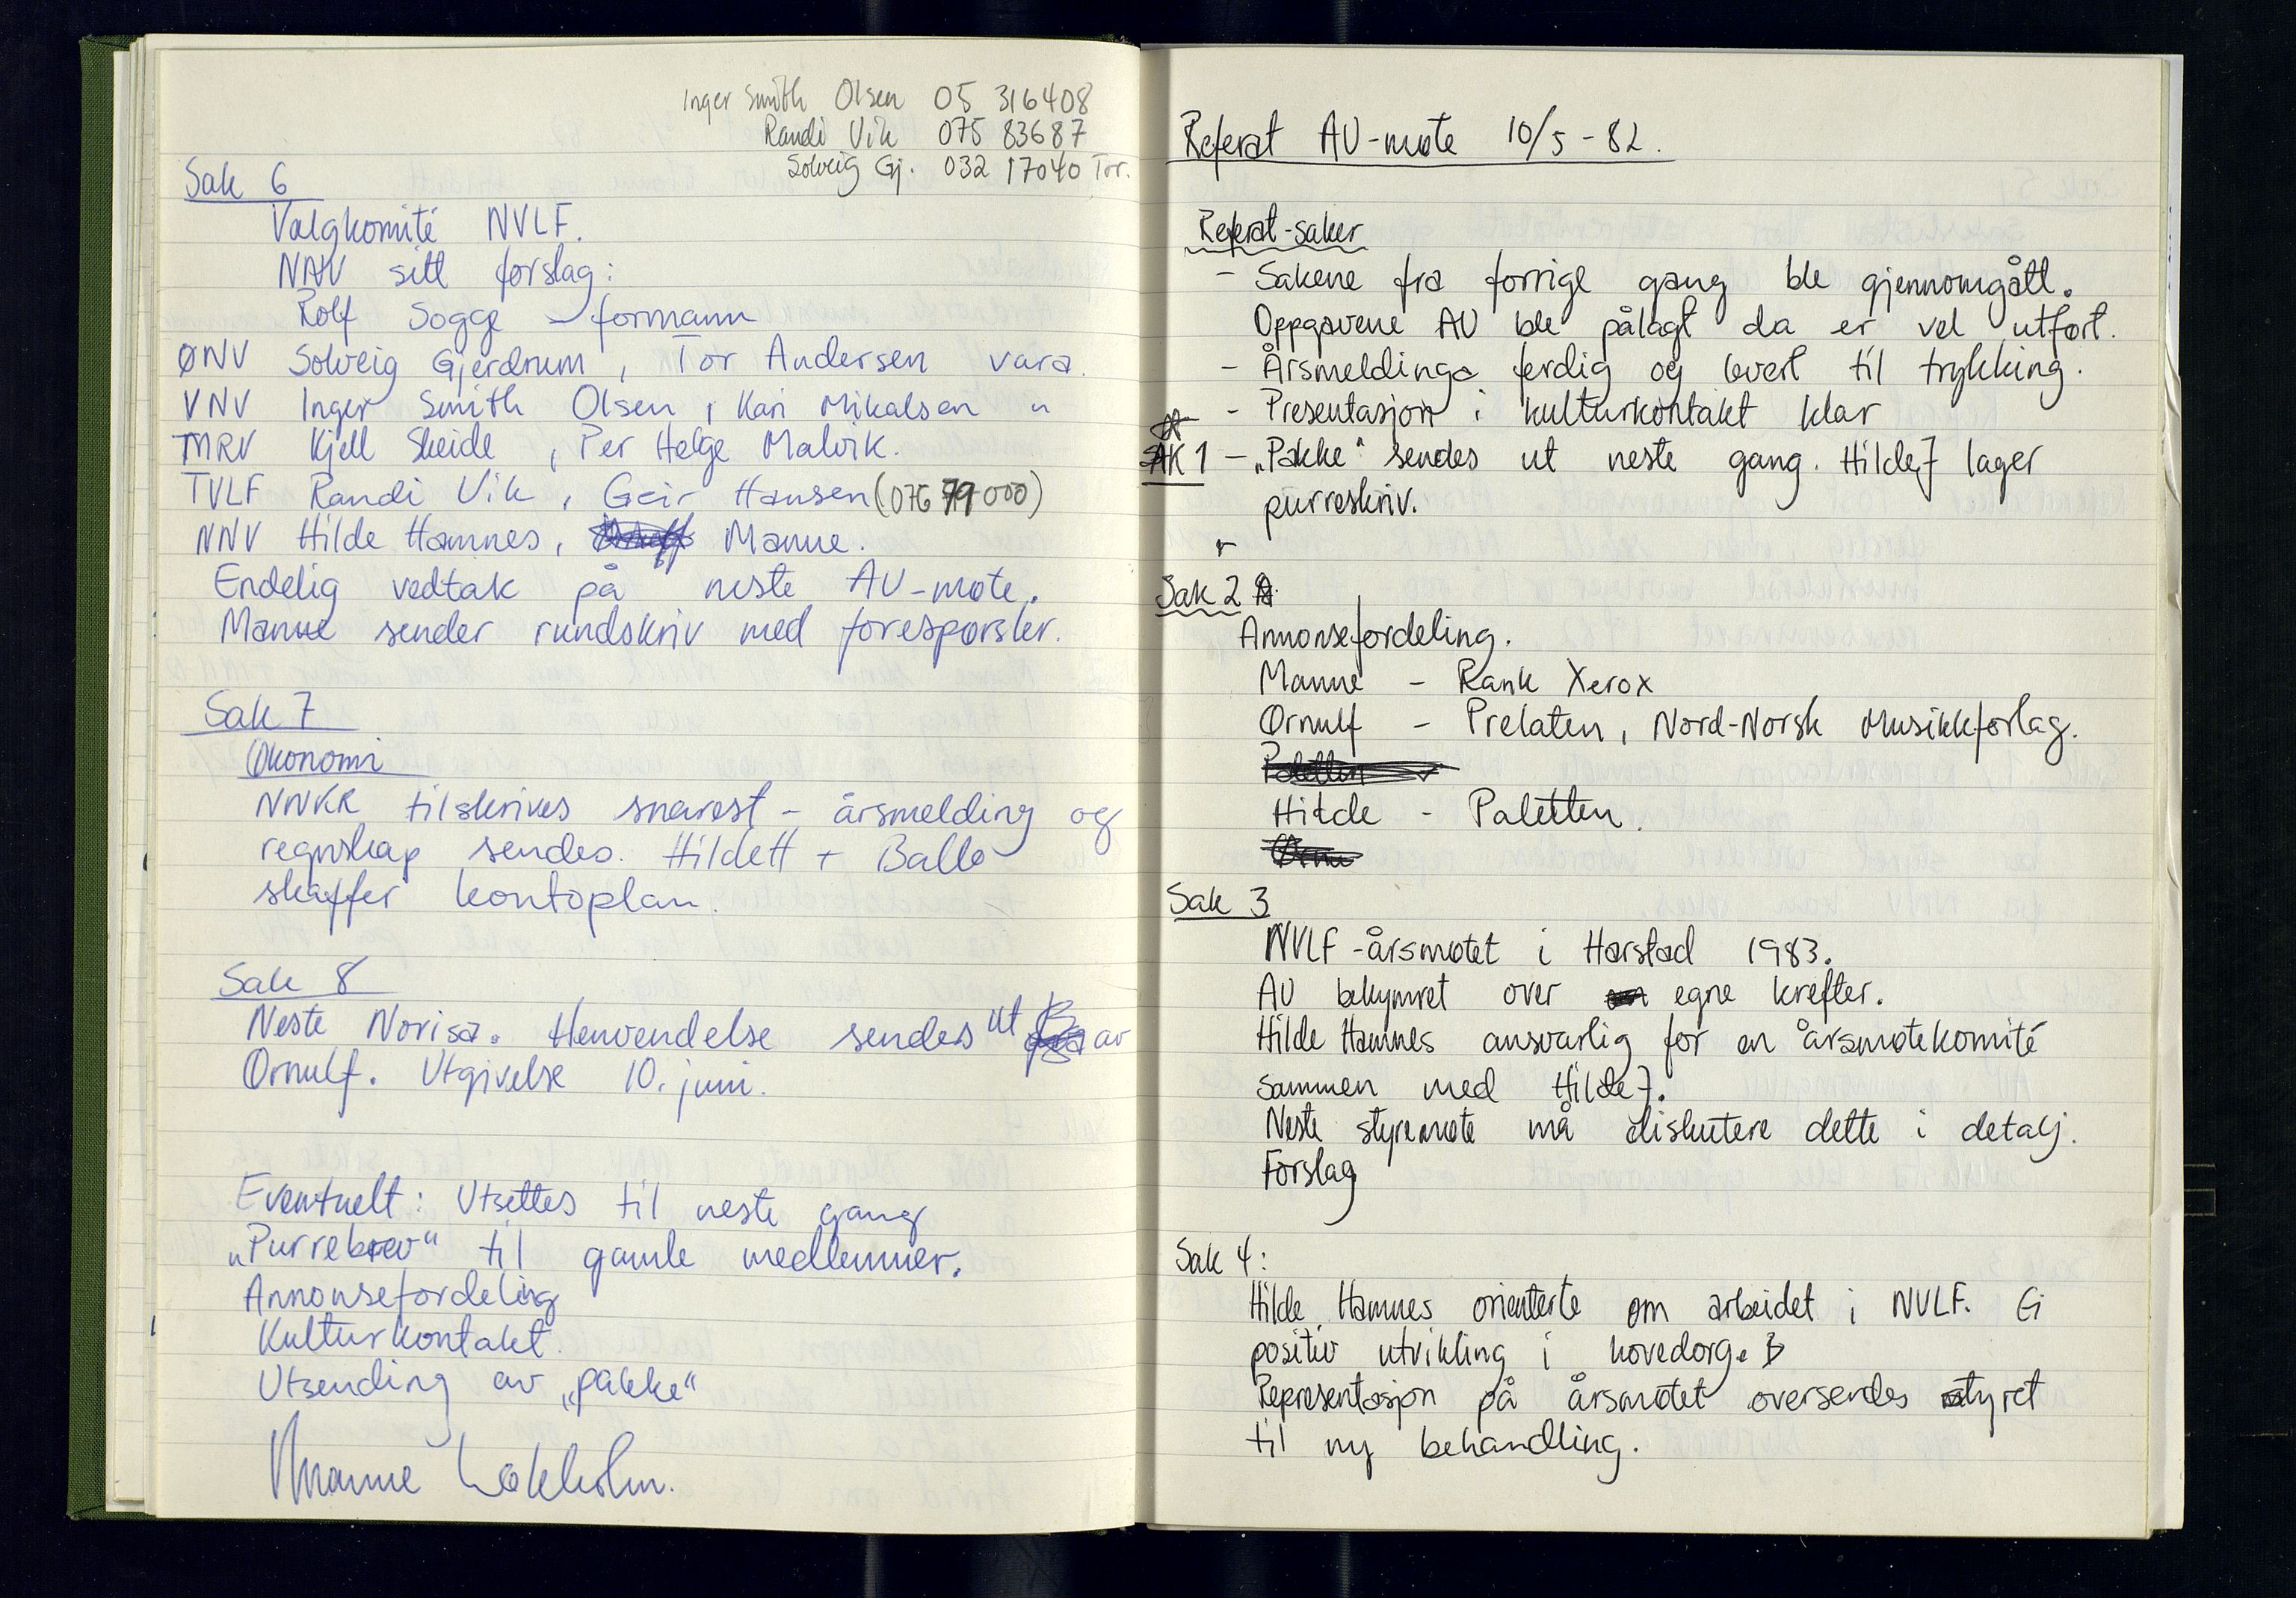 Inger Smith Olsen 05 316408
Randi Vik 075 83687
Solveig Gj. 032 17040 Tor.
Sak 6
Valgkomité NVLF.
NAV sitt forslag:
Rolf Sogge - formann
ØNV Solveig Gjerdrum, Tor Andersen vara.
VNV Inger Smith Olsen, Kari Mikalsen "
MRV Kjell Skeide, Per Helge Malvik.
TVLF Randi Vik, Geir Hansen (076 79 000)
NNV Hilde Hamnes, Manne.
Endelig vedtak på neste AU-møte.
Manne sender rundskriv med forespørsler.
Sak 7
Økonomi
NNKR tilskrives snarest - årsmelding og
regnskap sendes. Hildett + Ballo
skaffer kontoplan.
Sak 8
Neste Norisa. Henvendelse sendes ut av
Ørnulf. Utgivelse 10. juni.
Eventuelt: Utsettes til neste gang
„Purrebrev" til gamle medlemmer.
Annonsefordeling
Kulturkontakt
Utsending av „pakke"
Manne Løkholm.
Referat AU-møte 10/5 - 82.
Referat-saker
- Sakene fra forrige gang ble gjennomgått.
Oppgavene AU ble pålagt da er vel utført.
- Årsmeldinga ferdig og levert til trykking.
- Presentasjon i kulturkontakt klar
SAK 1 - „Pakke" sendes ut neste gang. Hilde 7 lager
purreskriv.
Sak 2
Annonsefordeling.
Manne - Rank Xerox
Ørnulf - Prelaten, Nord-Norsk Musikkforlag.
Paletten
Hilde - Paletten.
Sak 3
NVLF-årsmøtet i Harstad 1983.
AU bekymret over egne krefter.
Hilde Hamnes ansvarlig for en årsmøtekomité
sammen med Hilde 7.
Neste styremøte må diskutere dette i detalj.
Forslag
Sak 4:
Hilde Hamnes orienterte om arbeidet i NVLF. Ei
positiv utvikling i hovedorg.
Representasjon på årsmøtet oversendes styret
til ny behandling.